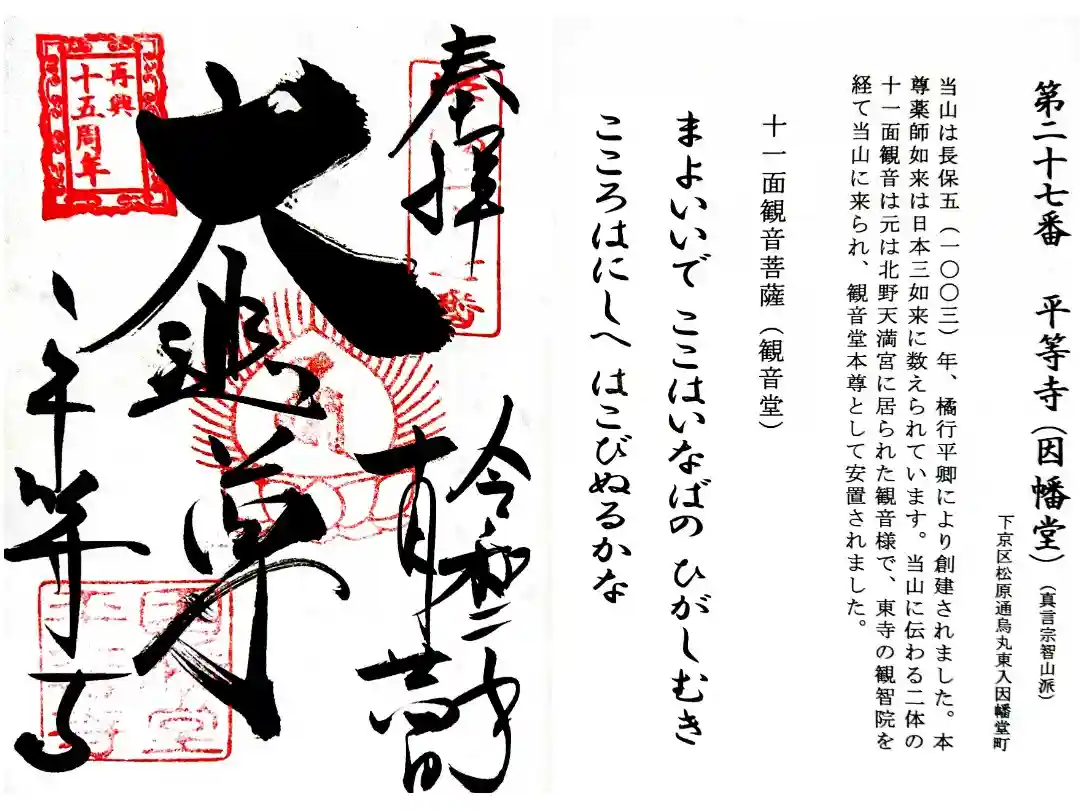 第二十七番　平等寺（因幡堂）（真言宗智山派）
下京区松原通烏丸東入因幡堂町
当山は長保五（一〇〇三）年、橘行平卿により創建されました。本
尊薬師如来は日本三如来に数えられています。当山に伝わる二体の
十一面観音は元は北野天満宮に居られた観音様で、東寺の観智院を
経て当山に来られ、観音堂本尊として安置されました。
十一面観音菩薩（観音堂）
まよいいで ここはいなばの ひがしむき
こころはにしへ はこびぬるかな
奉拝
令和二
大
平等寺
再興
十五周年